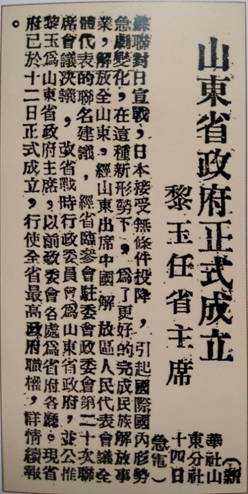 山東省政府正式成立
黎玉任省主席
（新
華社山
東分社
十四日
急電）
蘇聯對日宣戰，日本接受無條件投降，引起國際國內形勢
急劇變化，在這種新形勢下，為了更好的完成民族解放事
業，解放全山東，經山東出席中國解放區人民代表會議全
體代表的聯名建議，經省臨參會駐委會政委會第二十次聯
席會議決議，改省戰時行政委員會為山東省政府，並公推
黎玉為山東省政府主席，以前政委會各處為省府各廳。現省
府已於十二日正式成立，行使全省最高政府職權，詳情續報
。